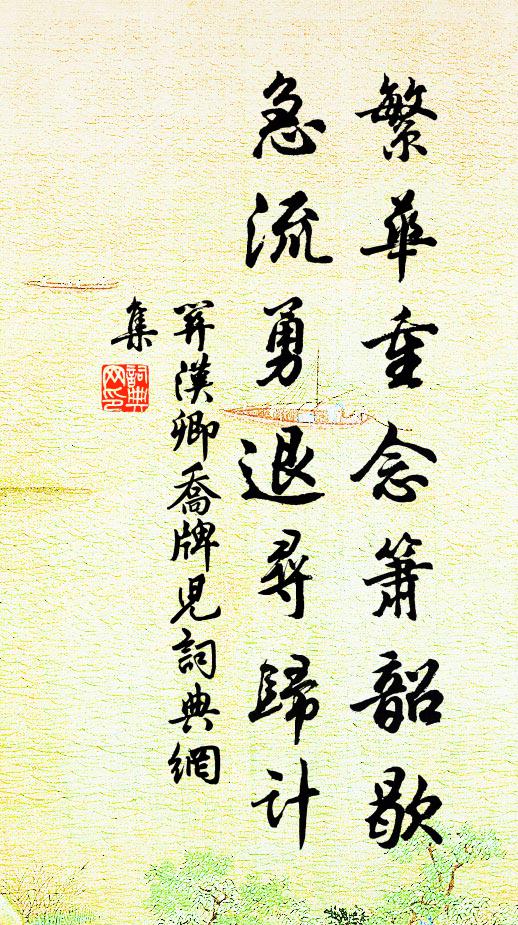 繁華重念簫韶歇
急流勇退尋歸計
關漢卿喬牌兒詞典網
集
詞典網印